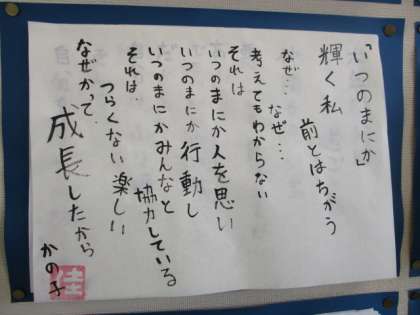 「いつのまにか」
輝く私
前とはちがう
なぜ…なぜ…
考えてもわからない
それは
いつのまにか人を思い
いつのまにか行動し
いつのまにかみんなと
協力している
それは…
つらくない楽しい
なぜかって…
成長したから
かの子
佳